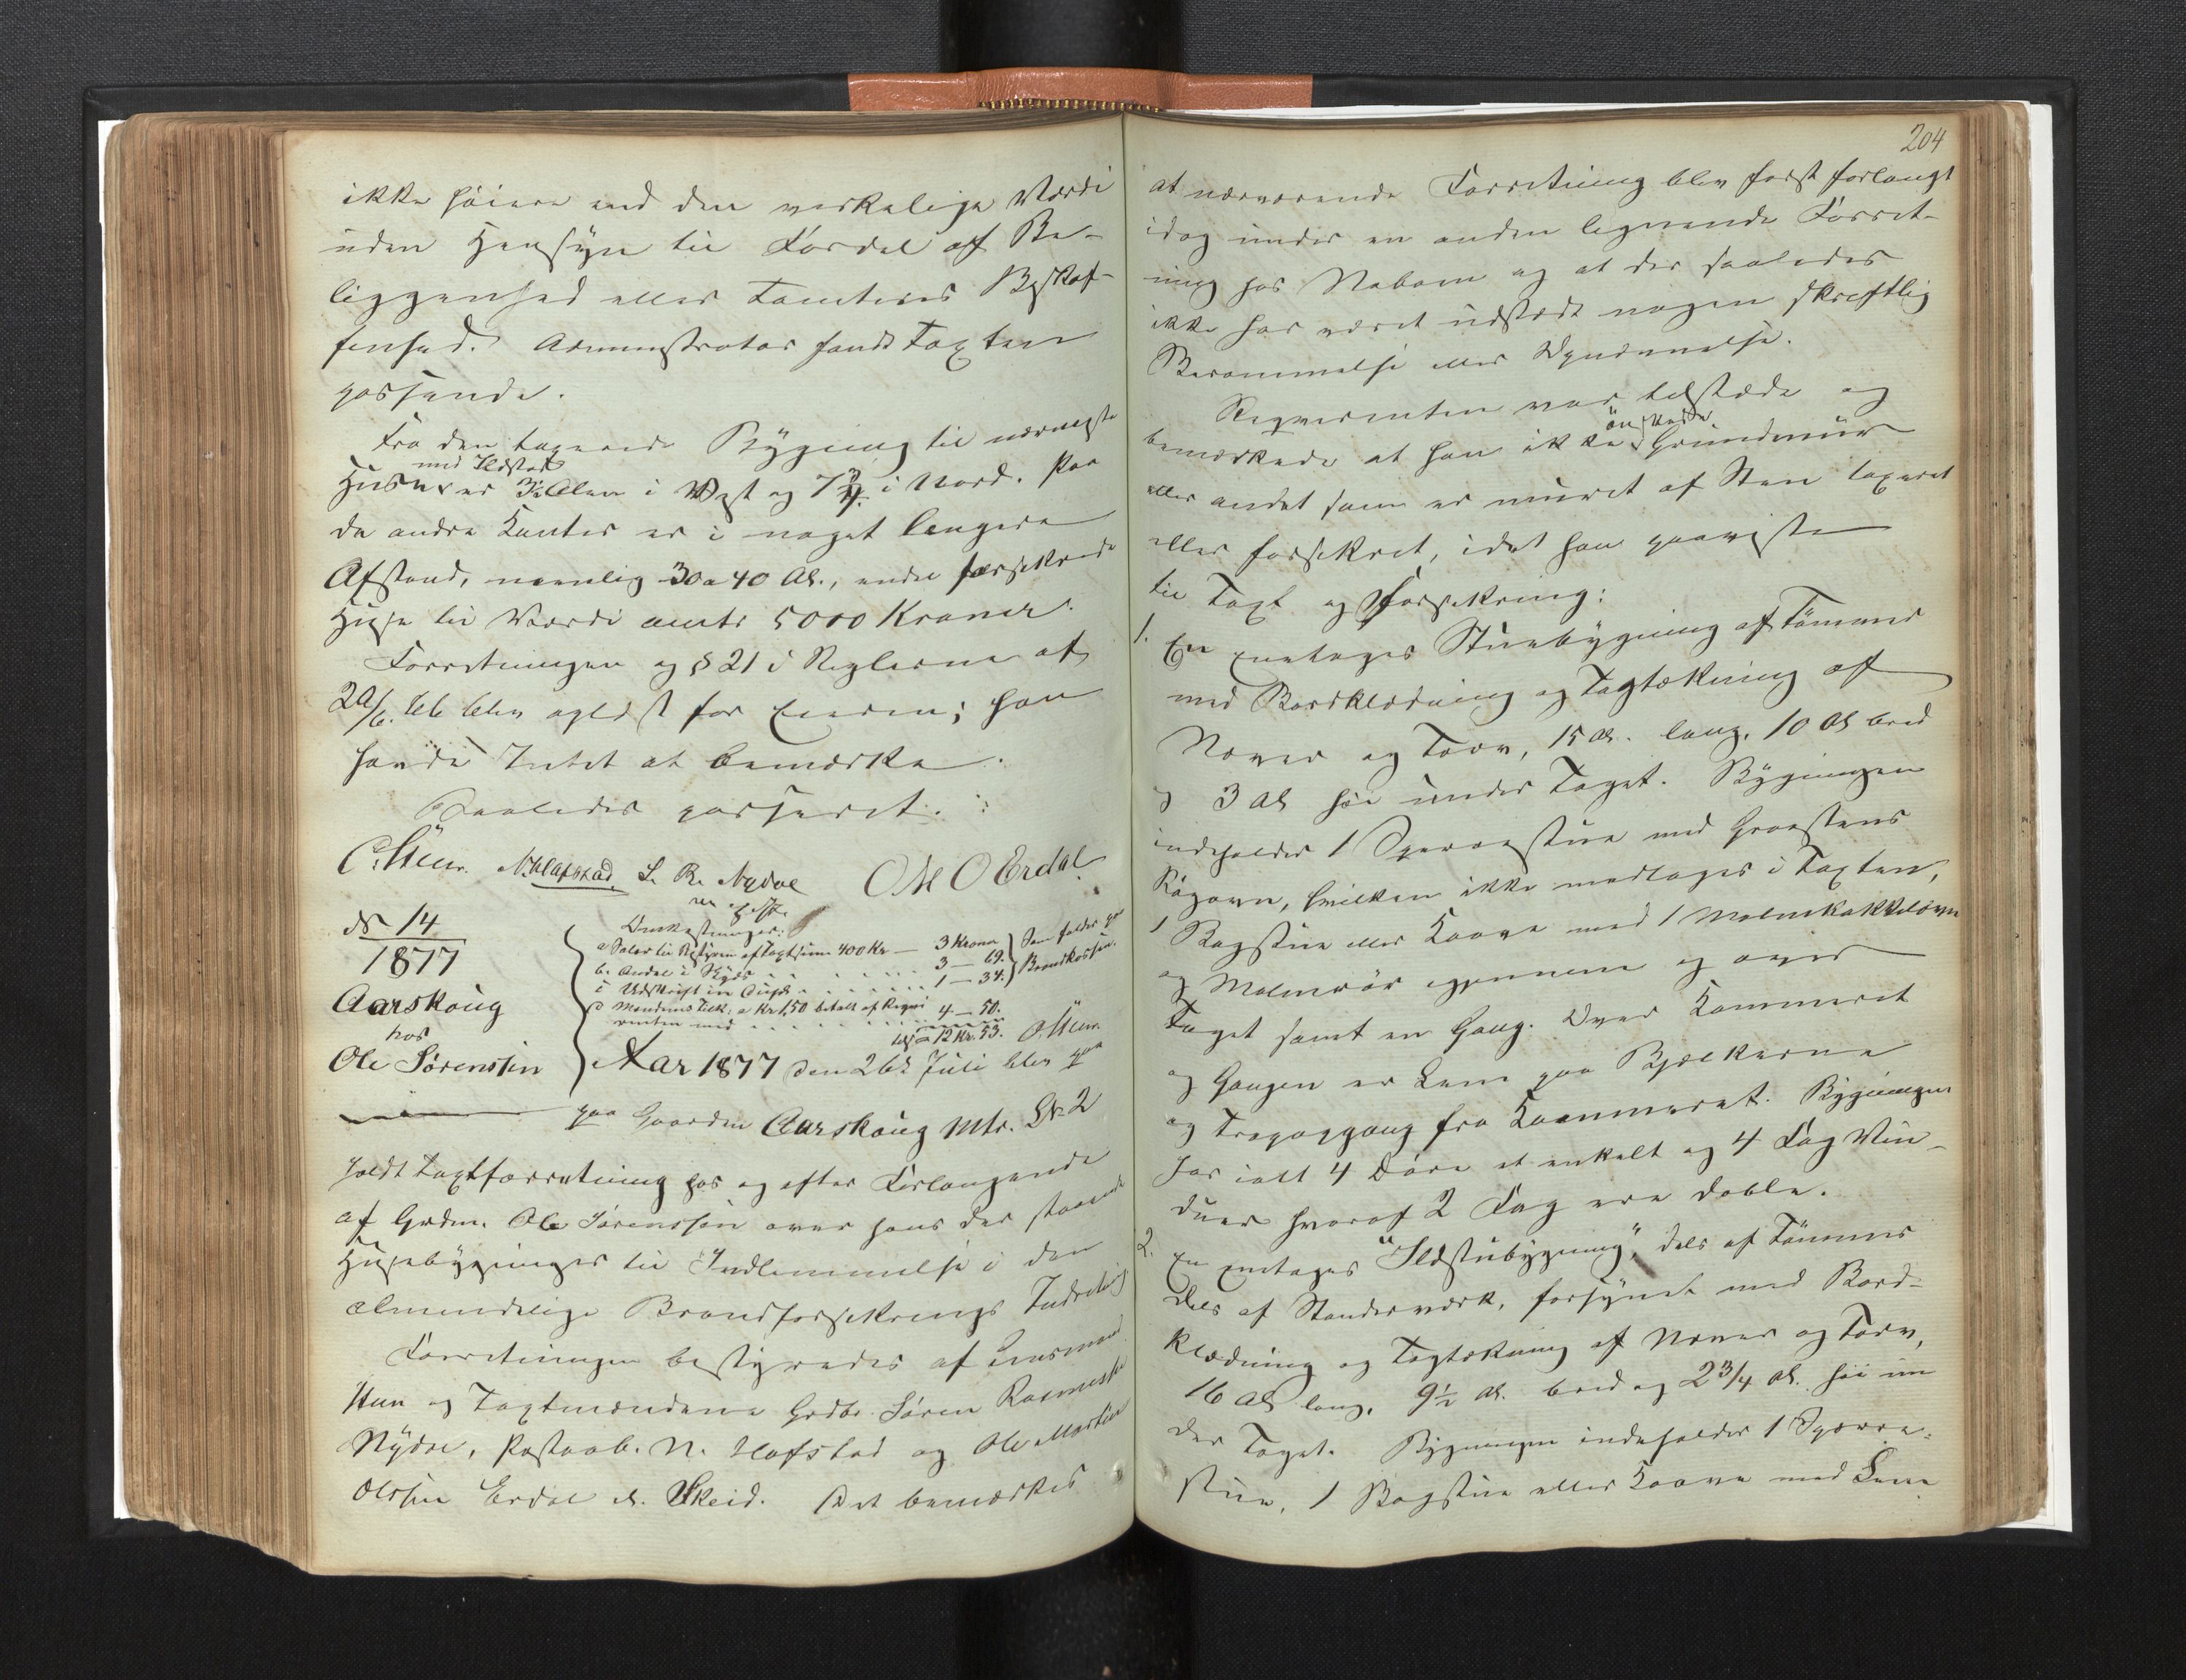 ikke høiere end den verkelige Værdi
uden Hensyn til Fordel af Be-
liggenhed eller Tomternes Beskaf-
fenhed. Administrator fandt Taxten
passende.
Fra den taxerede Bygning til nærmeste
med Ildsted
Huse er 3½ Alen i Vest og 7 i Nord. Paa
de andre Kanter er i noget længere
Afstand, nemlig 30 a 40 Al., endel forsikrede
Huse til Værdi omtr 5000 Kroner.
Forretningen og § 21 i Reglerne af
29/6. blev oplæst for Eieren; han
havde Intet at bemærke.
Saaledes passeret.
C. Sten. N. Hafstad. S. R. Nydal Ole O Erdal
m. f. P.
№ 14
1877
Aarskoug
hos
Ole Sørensen
Omkostninger:
a. Salær til Bestyren af Taxtsum 400 Kr — 3 Kroner
b. Andel i Skyds 3 — 69.
c Udskrift 1 — 34.
Som falder paa
Brandkassen.
d Mændenes Tilk. a Kr 1,50 betalt af Reqvi-
renten med 4 — 50.
12 Kr. 53. C. Sten.
Aar 1877 den 26de Juli blev paa
paa Gaarden Aarskoug Mtr. № 2
holdt Taxtforretning hos og efter Forlangende
af Grdm. Ole Sørenssen over hans der staaende
Husebygninger til Indlemmelse i den
almindelige Brandforsikrings Indretning
Forretningen bestyredes af Lensmand
Sten og Taxtmændene Grdbr. Søren Rasmussen
Nydal, Postaab. N. Hafstad og Ole Martin
Olssen Erdal d. Skeid. Det bemærkes
204
at nærværende Forretning blev først forlangt
idag under en anden lignende Forret-
ning hos Naboen og at der saaledes
ikke har været udstedt nogen skriftlig
Berammelse eller Udnævnelse.
Reqvirenten var tilstede og
ønskede
bemærkede at han ikke Grundmur
eller andet som er muret af Sten taxeret
eller forsikret, idet han paaviste
til Taxt og Forsikring:
1. En eenetages Stuebygning af Tømmer
med Bordklædning og Tagtækning af
Næver og Torv, 15 Al. lang, 10 Al bred
og 3 Al høi under Taget. Bygningen
indeholder 1 Sperrestue med Graastens
Røgovn, hvilken ikke medtages i Taxten,
1 Bagstue eller Kaave med 1 Malmkakkelovn
og Malmrør igjennem og over
Taget samt en Gang. Over Kammeret
og Gangen er Lem paa Bjælkerne
og Trapopgang fra Kammeret. Bygningen
har ialt 4 Døre et enkelt og 4 Fag Vin-
duer hvoraf 2 Fag ere doble.
2. En eenetages "Ildstubygning", dels af Tømmer
dels af Stenderværk, forsynet med Bord-
klædning og Tagtækning af Næver og Torv,
16 Al lang, 9½ Al. bred og 2 3/4 Al. høi un
der Taget. Bygningen indeholder 1 Sperre-
stue, 1 Bagstue eller Kaave med Lem